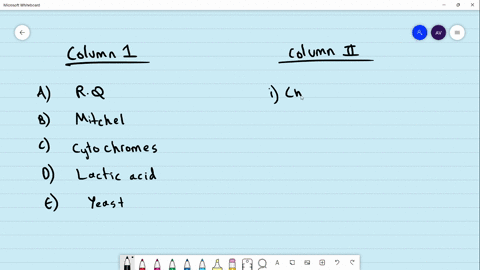 Microsoft Whiteboard
AV
Column 1
Column II
A) R.Q
i) Ch
B) Mitchel
C) Cytochromes
D) Lactic acid
E) Yeast